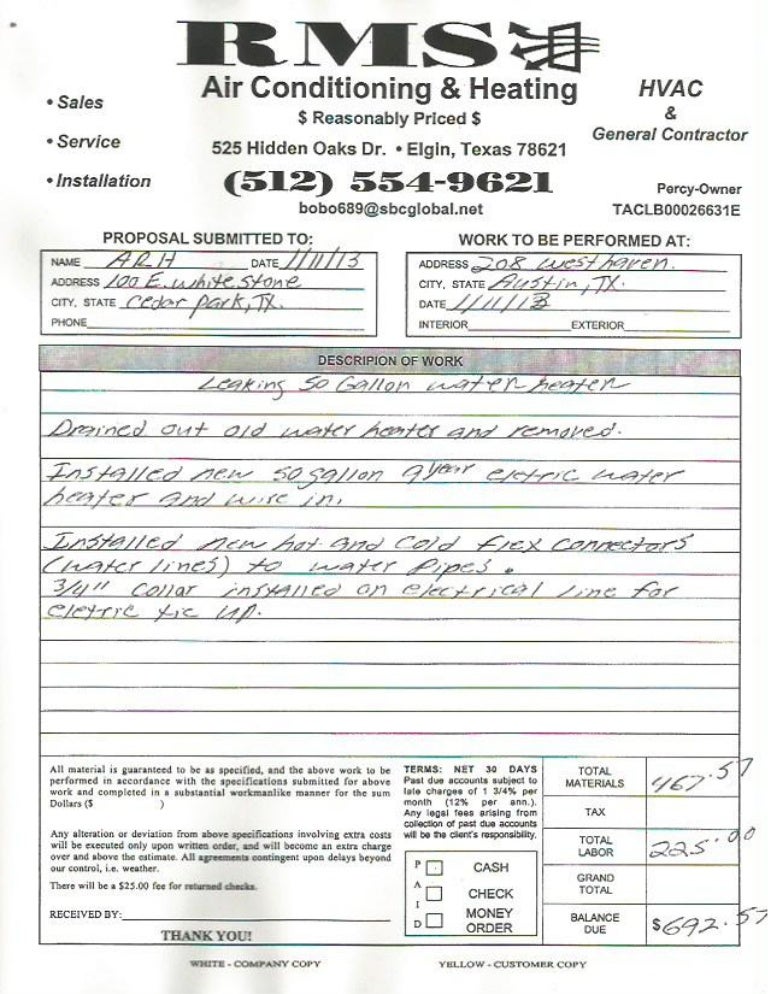 RMS
Air Conditioning & Heating
$ Reasonably Priced $
525 Hidden Oaks Dr. • Elgin, Texas 78621
(512) 554-9621
bobo689@sbcglobal.net
• Sales
• Service
• Installation
HVAC
&
General Contractor
Percy-Owner
TACLB00026631E
PROPOSAL SUBMITTED TO:
NAME ARH DATE 1/11/13
ADDRESS 100 E. whitestone
CITY, STATE Cedar Park, TX.
PHONE
WORK TO BE PERFORMED AT:
ADDRESS 208 westhaven.
CITY, STATE Austin, TX.
DATE 1/11/13
INTERIOR EXTERIOR
DESCRIPION OF WORK
Leaking 50 Gallon water heater
Drained out old water heater and removed.
Installed new 50 gallon 9 year eletric water
heater and wire in.
Installed new hot and cold flex connectors
(water lines) to water pipes.
3/4" collar installed on electrical line for
eletric tie up.
All material is guaranteed to be as specified, and the above work to be
performed in accordance with the specifications submitted for above
work and completed in a substantial workmanlike manner for the sum
Dollars ($ )
Any alteration or deviation from above specifications involving extra costs
will be executed only upon written order, and will become an extra charge
over and above the estimate. All agreements contingent upon delays beyond
our control, i.e. weather.
There will be a $25.00 fee for returned checks.
RECEIVED BY:
THANK YOU!
TERMS: NET 30 DAYS
Past due accounts subject to
late charges of 1 3/4% per
month (12% per ann.).
Any legal fees arising from
collection of past due accounts
will be the client's responsibility.
PAID
CASH
CHECK
MONEY
ORDER
TOTAL
MATERIALS 467.57
TAX
TOTAL
LABOR 225.00
GRAND
TOTAL
BALANCE
DUE $692.57
WHITE - COMPANY COPY YELLOW - CUSTOMER COPY